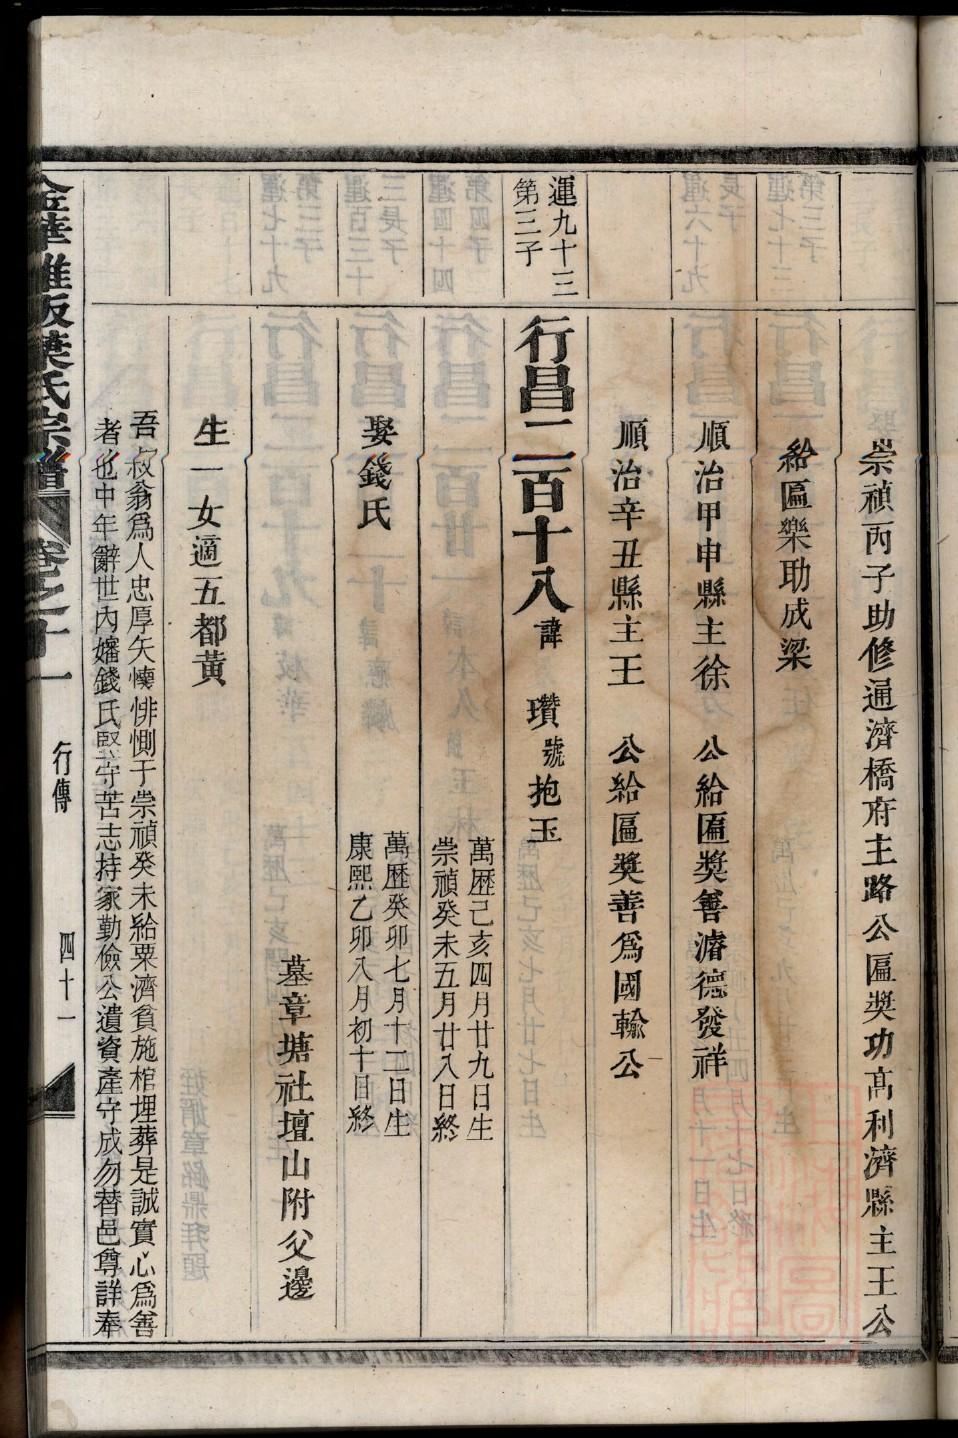 崇禎丙子助修通濟橋府主路公匾奬功高利濟縣主王公
給匾樂助成梁
順治甲申縣主徐 公給匾奬善濬德發祥
順治辛丑縣主王 公給匾奬善爲國輸公
運九十三
第三子
行昌二百十八諱 瓚號抱玉
萬歷己亥四月廿九日生
崇禎癸未五月廿八日終
娶錢氏
萬歷癸卯七月十二日生
康熙乙卯八月初十日終
墓章塘社壇山附父邊
生一女適五都黄
吾叔翁爲人忠厚矢懷悱惻于崇禎癸未給粟濟貧施棺埋葬是誠實心爲善
者也中年辭世內嬸錢氏堅守苦志持家勤儉公遺資產守成勿替邑尊詳奉
金華雅畈葉氏宗譜 卷之十一 行傳 四十一